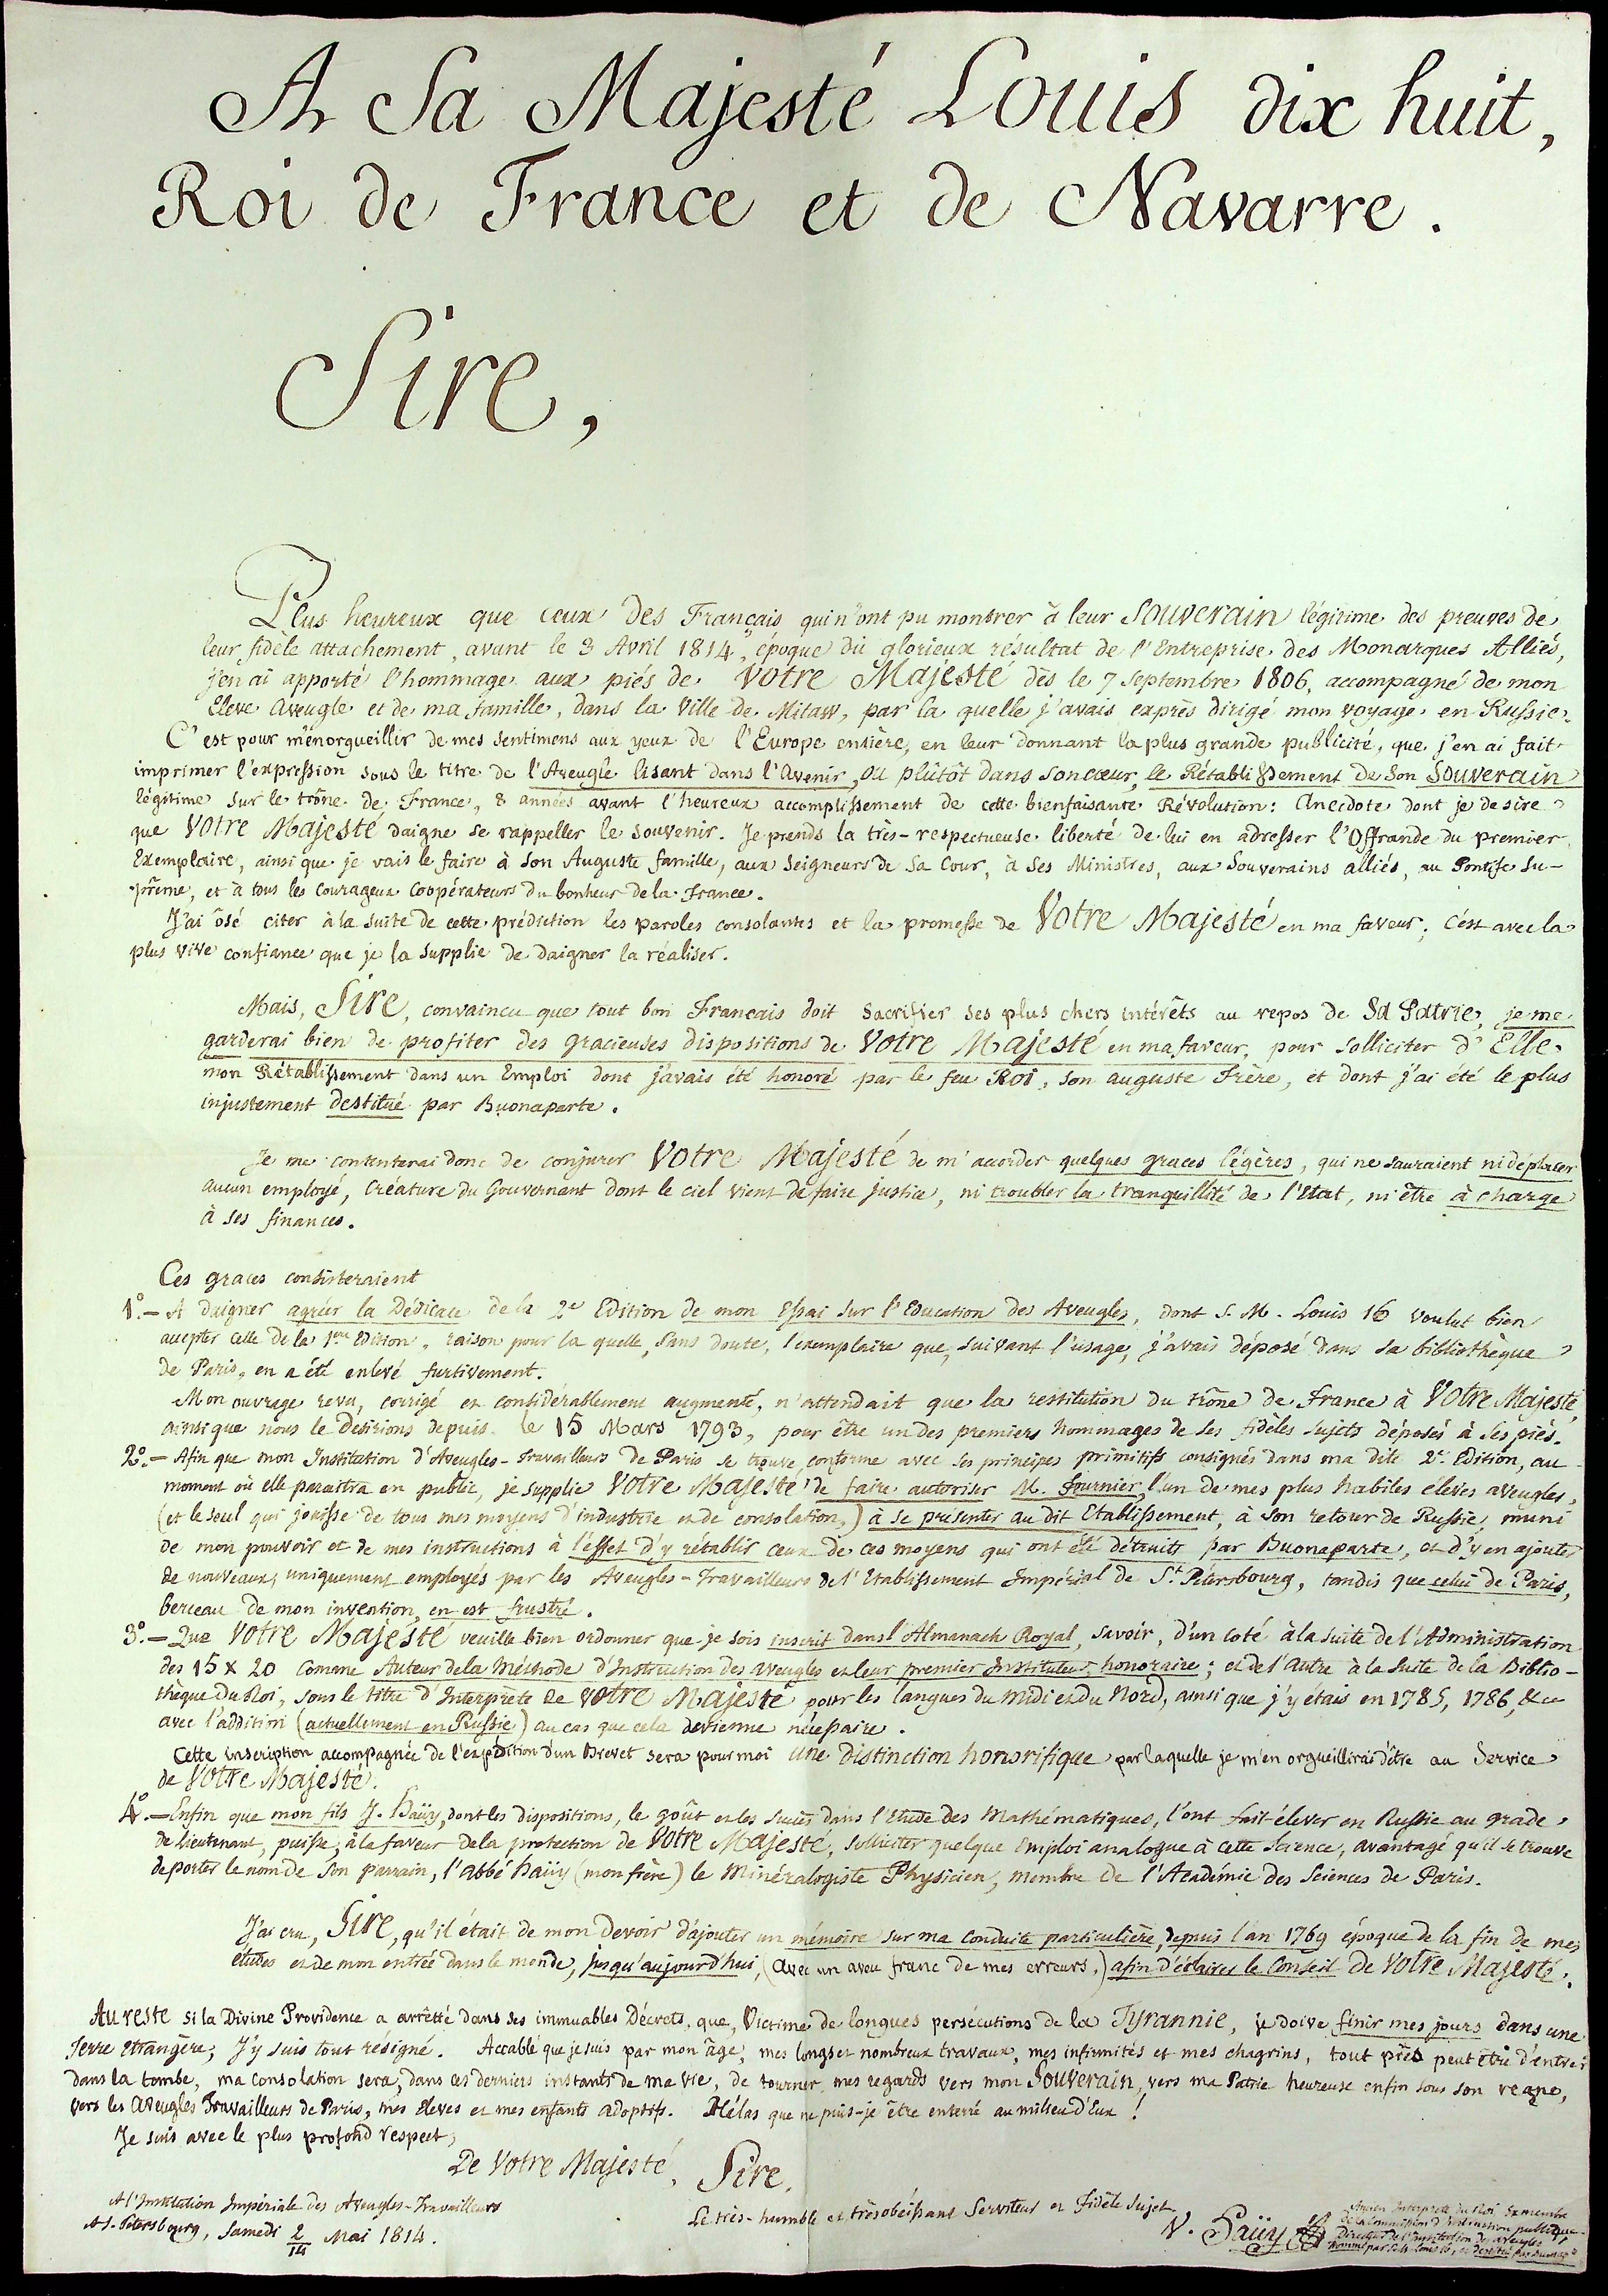 A Sa Majesté Louis dix huit,
Roi de France et de Navarre.
Sire,
Plus heureux que ceux des Français qui n'ont pu montrer à leur Souverain légitime des preuves de
leur fidèle attachement, avant le 3 Avril 1814, époque du glorieux résultat de l'Entreprise des Monarques Alliés,
j'en ai apporté l'hommage aux piés de Votre Majesté dès le 7 Septembre 1806, accompagné de mon
Eleve Aveugle et de ma famille, dans la Ville de Mitaw, par la quelle j'avais exprès dirigé mon voyage en Russie.
C'est pour m'enorgueillir de mes sentimens aux yeux de l'Europe entière, en leur donnant la plus grande publicité, que j'en ai fait
imprimer l'expression sous le titre de l'Aveugle lisant dans l'Avenir, ou plûtôt dans son cœur, le Rétablissement de son Souverain
légitime sur le trône de France, 8 années avant l'heureux accomplissement de cette bienfaisante Révolution: Anecdote dont je desire
que Votre Majesté daigne se rappeller le souvenir. Je prends la très-respectueuse liberté de lui en adresser l'Offrande du premier
Exemplaire, ainsi que je vais le faire à son Auguste famille, aux Seigneurs de Sa Cour, à Ses Ministres, aux Souverains alliés, au Pontife Su-
-prême, et à tous les courageux Coopérateurs du bonheur de la France.
J'ai ôsé citer à la suite de cette prédiction les paroles consolantes et la promesse de Votre Majesté en ma faveur; c'est avec la
plus vive confiance que je la supplie de daigner la réaliser.
Mais, Sire, convaincu que tout bon Francais doit sacrifier ses plus chers intérêts au repos de Sa Patrie, je me
garderai bien de profiter des gracieuses dispositions de Votre Majesté en ma faveur, pour solliciter d'Elle
mon Rétablissement dans un Emploi dont j'avais été honoré par le feu Roi, son auguste Frère, et dont j'ai été le plus
injustement destitué par Buonaparte.
Je me contenterai donc de conjurer Votre Majesté de m'accorder quelques graces légères, qui ne sauraient ni déplacer
aucun employé, Créature du Gouvernant dont le ciel vient de faire justice, ni troubler la tranquillité de l'Etat, ni être à charge
à ses finances.
Ces graces consisteraient
1°.— A daigner agréer la Dédicace de la 2e Edition de mon Essai sur l'Education des Aveugles, dont S. M. Louis 16 voulut bien
accepter celle de la 1ere Edition, raison pour la quelle, sans doute, l'exemplaire que, suivant l'usage, j'avais déposé dans sa bibliothèque
de Paris, en a été enlevé furtivement.
Mon ouvrage revu, corrigé et considérablement augmenté, n'attendait que la restitution du trône de France à Votre Majesté,
ainsi que nous le desirions depuis le 15 Mars 1793, pour être un des premiers hommages de ses fidèles Sujets déposés à ses piés.
2°.— Afin que mon Institution d'Aveugles-Travailleurs de Paris se trouve conforme avec les principes primitifs consignés dans ma dite 2e. Edition, au
moment où elle paraîtra en public, je supplie Votre Majesté de faire autoriser M. Fournier, l'un de mes plus habiles élèves aveugles,
(et le seul qui jouisse de tous mes moyens d'industrie et de consolation,) à se présenter au dit Etablissement, à son retour de Russie, muni
de mon pouvoir et de mes instructions à l'effet d'y rétablir ceux de ces moyens qui ont été détruits par Buonaparte, et d'y en ajouter
de nouveaux, uniquement employés par les Aveugles-Travailleurs de l'Etablissement Impérial de St. Pétersbourg, tandis que celui de Paris,
berceau de mon invention, en est frustré.
3°.— Que Votre Majesté veuille bien ordonner que je sois inscrit dans l'Almanach Royal, savoir, d'un coté à la suite de l'Administration
des 15 x 20 comme Auteur de la Méthode d'Instruction des aveugles et leur premier Instituteur honoraire; et de l'autre à la Suite de la Biblio-
thèque du Roi, sous le titre d'Interprète de Votre Majesté pour les langues du Midi et du Nord, ainsi que j'y étais en 1785, 1786, &ce
avec l'addition (actuellement en Russie) au cas que cela devienne nécessaire.
Cette inscription accompagnée de l'expédition d'un Brevet sera pour moi une distinction honorifique par laquelle je m'en orgueillirai d'être au Service
de Votre Majesté.
4°.— Enfin que mon fils J. Haüy, dont les dispositions, le goût et les succès dans l'Etude des Mathématiques, l'ont fait élever en Russie au grade
de Lieutenant, puisse, à la faveur de la protection de Votre Majesté, solliciter quelque Emploi analogue à cette Science, avantagé qu'il se trouve
de porter le nom de son parrain, l'abbé haüy (mon frère) le Minéralogiste Physicien, membre de l'Académie des Sciences de Paris.
J'ai cru, Sire, qu'il était de mon devoir d'ajouter un mémoire sur ma conduite particulière, depuis l'an 1769 époque de la fin de mes
études et de mon entrée dans le monde, jusqu'aujourd'hui, (avec un aveu franc de mes erreurs,) afin d'éclairer le Conseil de Votre Majesté.
Au reste si la Divine Providence a arrêtté dans ses immuables Décrets, que, Victime de longues persécutions de la Tyrannie, je doive finir mes jours dans une
Terre étrangère; J'y suis tout résigné. Accablé que je suis par mon âge, mes longs et nombreux travaux, mes infirmités et mes chagrins, tout près peut être d'entrer
dans la tombe, ma consolation sera, dans ces derniers instants de ma vie, de tourner mes regards vers mon Souverain, vers ma Patrie heureuse enfin sous son regne,
vers les Aveugles Travailleurs de Paris, mes élèves et mes enfants adoptifs. Hélas que ne puis-je être enterré au milieu d'Eux!
Je suis avec le plus profond respect,
De Votre Majesté, Sire,
A l'Institution Impériale des Aveugles-Travailleurs
A S. Pétersbourg, Samedi 2/14 Mai 1814.
Le très-humble et très obéissant Serviteur et fidèle Sujet
V. Haüy
Ancien Interprete du Roi Exmembre
de la Commission d'Instruction publique
Directeur de l'Institution des aveugles
nommé par S. M. Louis 16, et destitué par Buonap.